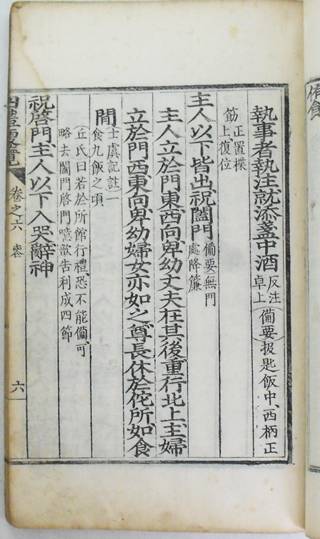 執事者執注就添盞中酒 反注卓上 (備要)扱匙飯中西柄正
筯正置楪上復位
主人以下皆出祝闔門 備要無門處降簾
主人立於門東西向卑幼丈夫在其後重行北上主婦
立於門西東向卑幼婦女亦如之尊長休於他所如食
間 士虞記註一食九飯之項
丘氏曰若於所館行禮恐不能備可
略去闔門啓門噫歆告利成四節
祝啓門主人以下入哭辭神
四禮便覽 卷之六 六